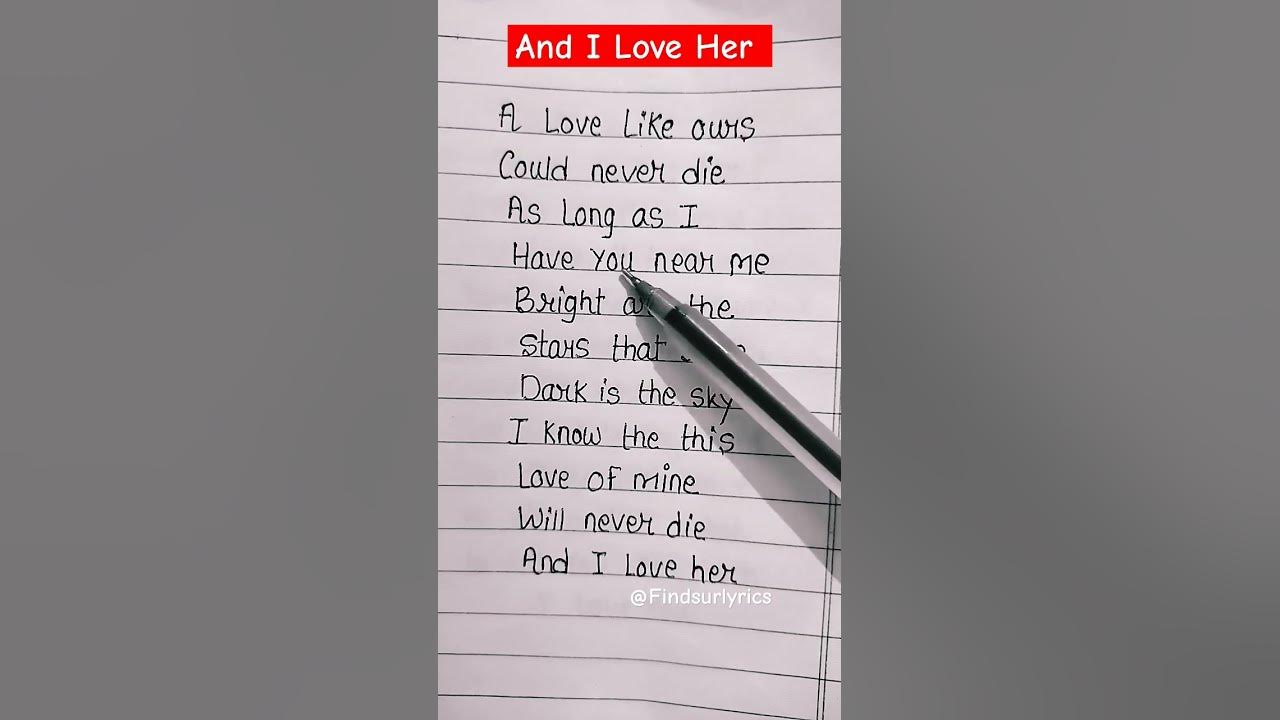 And I Love Her
A Love Like ours
Could never die
As Long as I
Have you near me
Bright the
Stars that
Dark is the sky
I know the this
Love of mine
Will never die
And I Love her
@Findsurlyrics